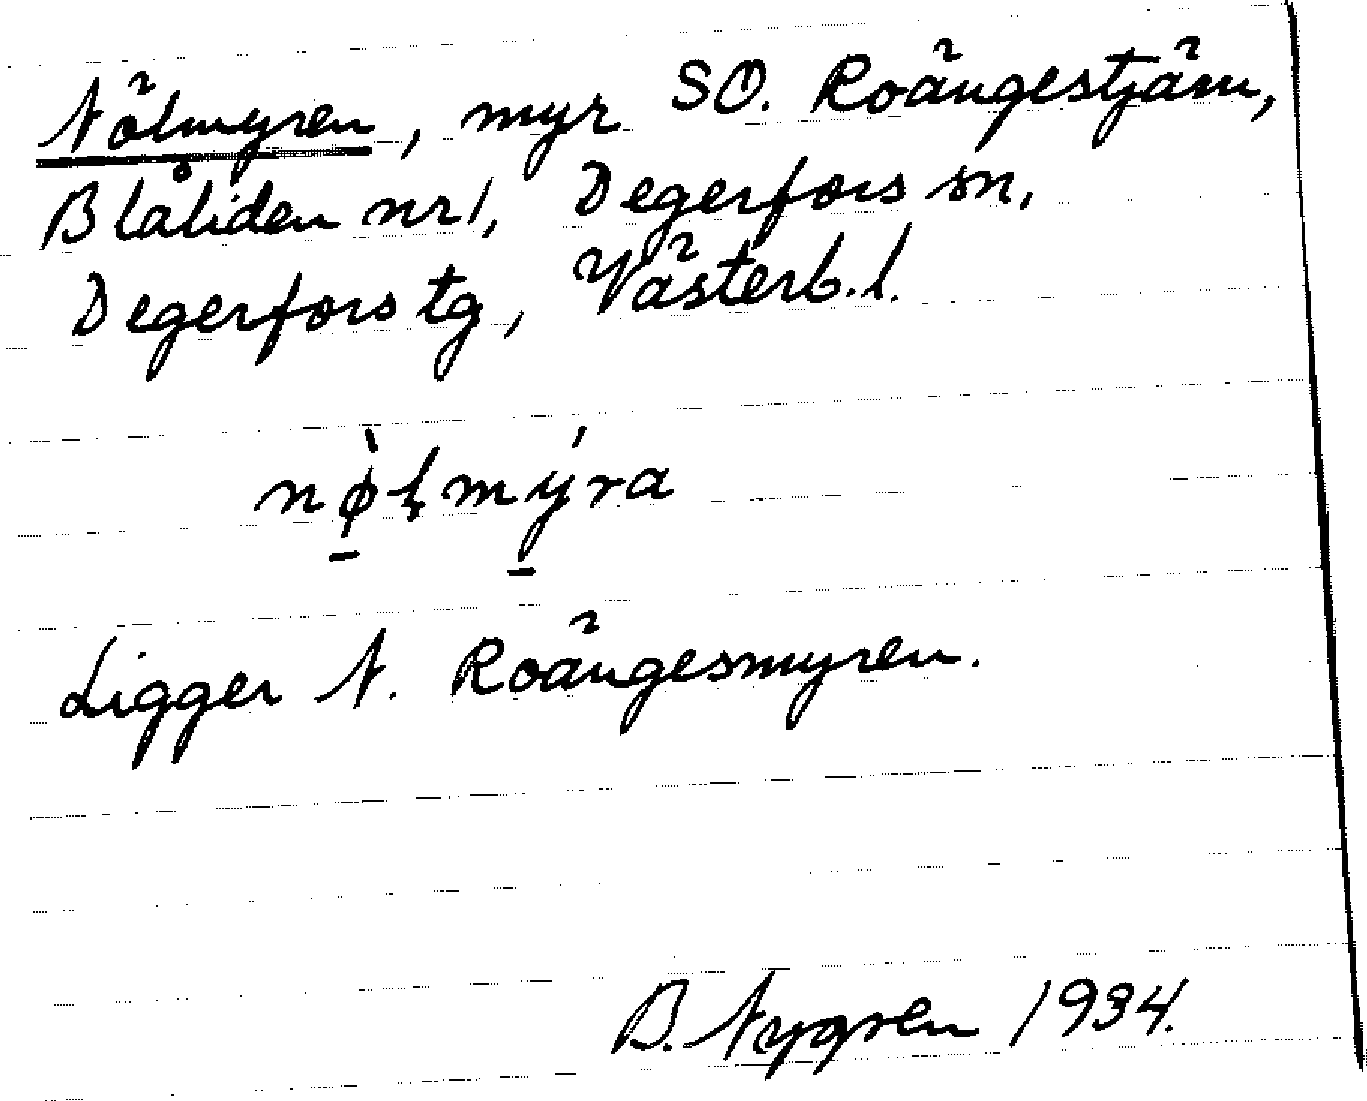 Nölmyren, myr SO. Roängestjärn,
Blåliden nr 1, Degerfors sn,
Degerfors tg, Västerb.l.
nø̀ɫmýra
Ligger N. Roängesmyren.
B. Nygren 1934.